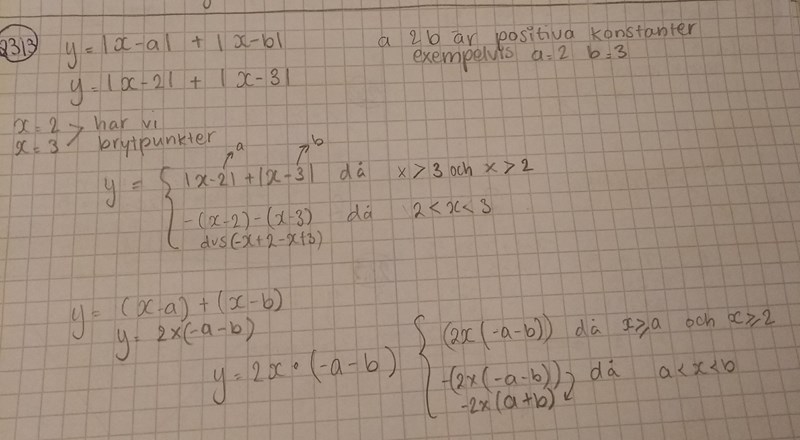 2313
y = |x-a| + |x-b|
a & b är positiva konstanter
exempelvis a=2 b=3
y = |x-2| + |x-3|
x = 2 > har vi
x = 3 brytpunkter
a b
y = { |x-2| + |x-3| då x > 3 och x > 2
-(x-2)-(x-3) då 2 < x < 3
dvs(-x+2-x+3)
y = (x-a) + (x-b)
y = 2x(-a-b)
y = 2x • (-a-b) { (2x(-a-b)) då x ≥ a och x ≥ 2
-(2x(-a-b)) då a < x < b
-2x(a+b)